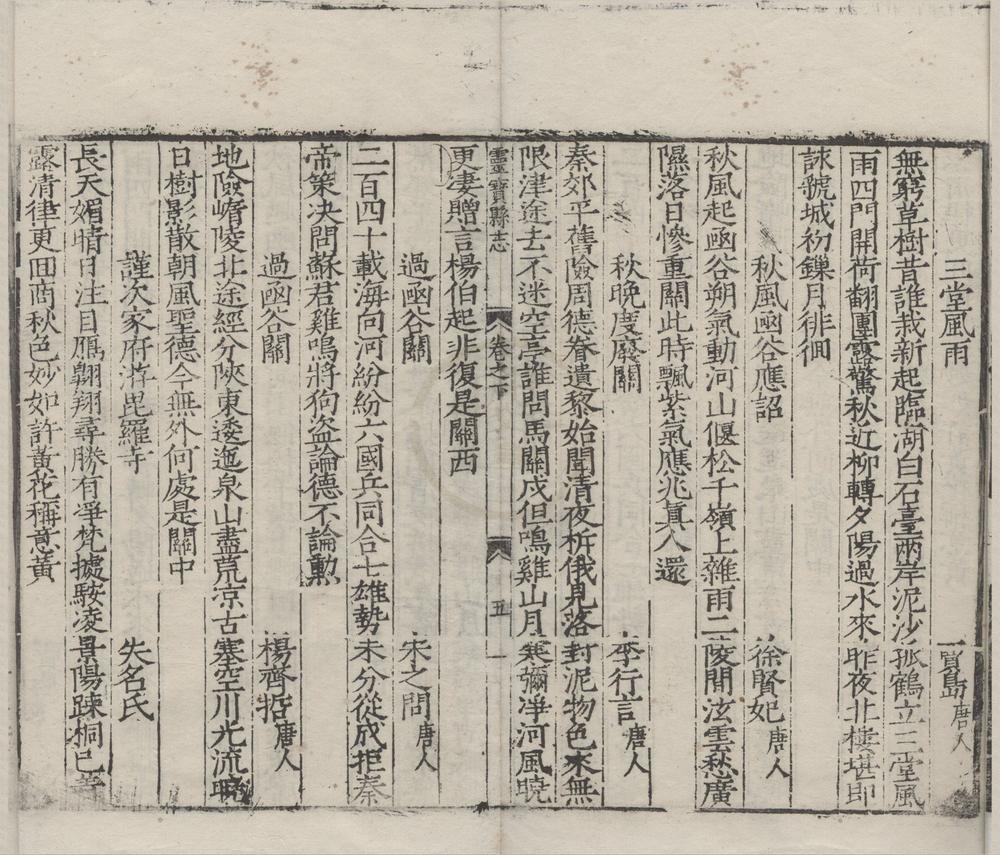 三堂風雨 賈島唐人
無窮草樹昔誰栽新起臨湖白石臺兩岸泥沙孤鶴立三堂風
雨四門開荷翻團露驚秋近柳轉夕陽過水來昨夜北樓堪即
詠虢城初鏁月徘徊
秋風函谷應詔 徐賢妃唐人
秋風起函谷朔氣動河山偃松千嶺上雜雨二陵間泫雲愁廣
隰落日慘重關此時飄紫氣應兆眞人還
秋晚度廢關 李行言唐人
秦郊平舊險周德眷遺黎始聞清夜柝俄見落封泥物色來無
限津途去不迷空亭誰問馬關戍但鳴雞山月寒彌凈河風曉
靈寶縣志 卷之下 五
更凄贈言楊伯起非復是關西
過函谷關 宋之問唐人
二百四十載海向河紛紛六國兵同合七雄勢未分從成拒秦
帝策決問蘇君雞鳴將狗盜論德不論勲
過函谷關 楊齊悊唐人
地險崤陵北途經分陜東逶迤泉山盡荒凉古塞空川光流曉
日樹影散朝風聖德今無外何處是關中
謹次家府游毘羅寺 失名氏
長天媚晴日注目鴈翺翔尋勝有凈梵據鞍凌景陽踈桐已
露清律更回商秋色妙如許黃花稱意黃